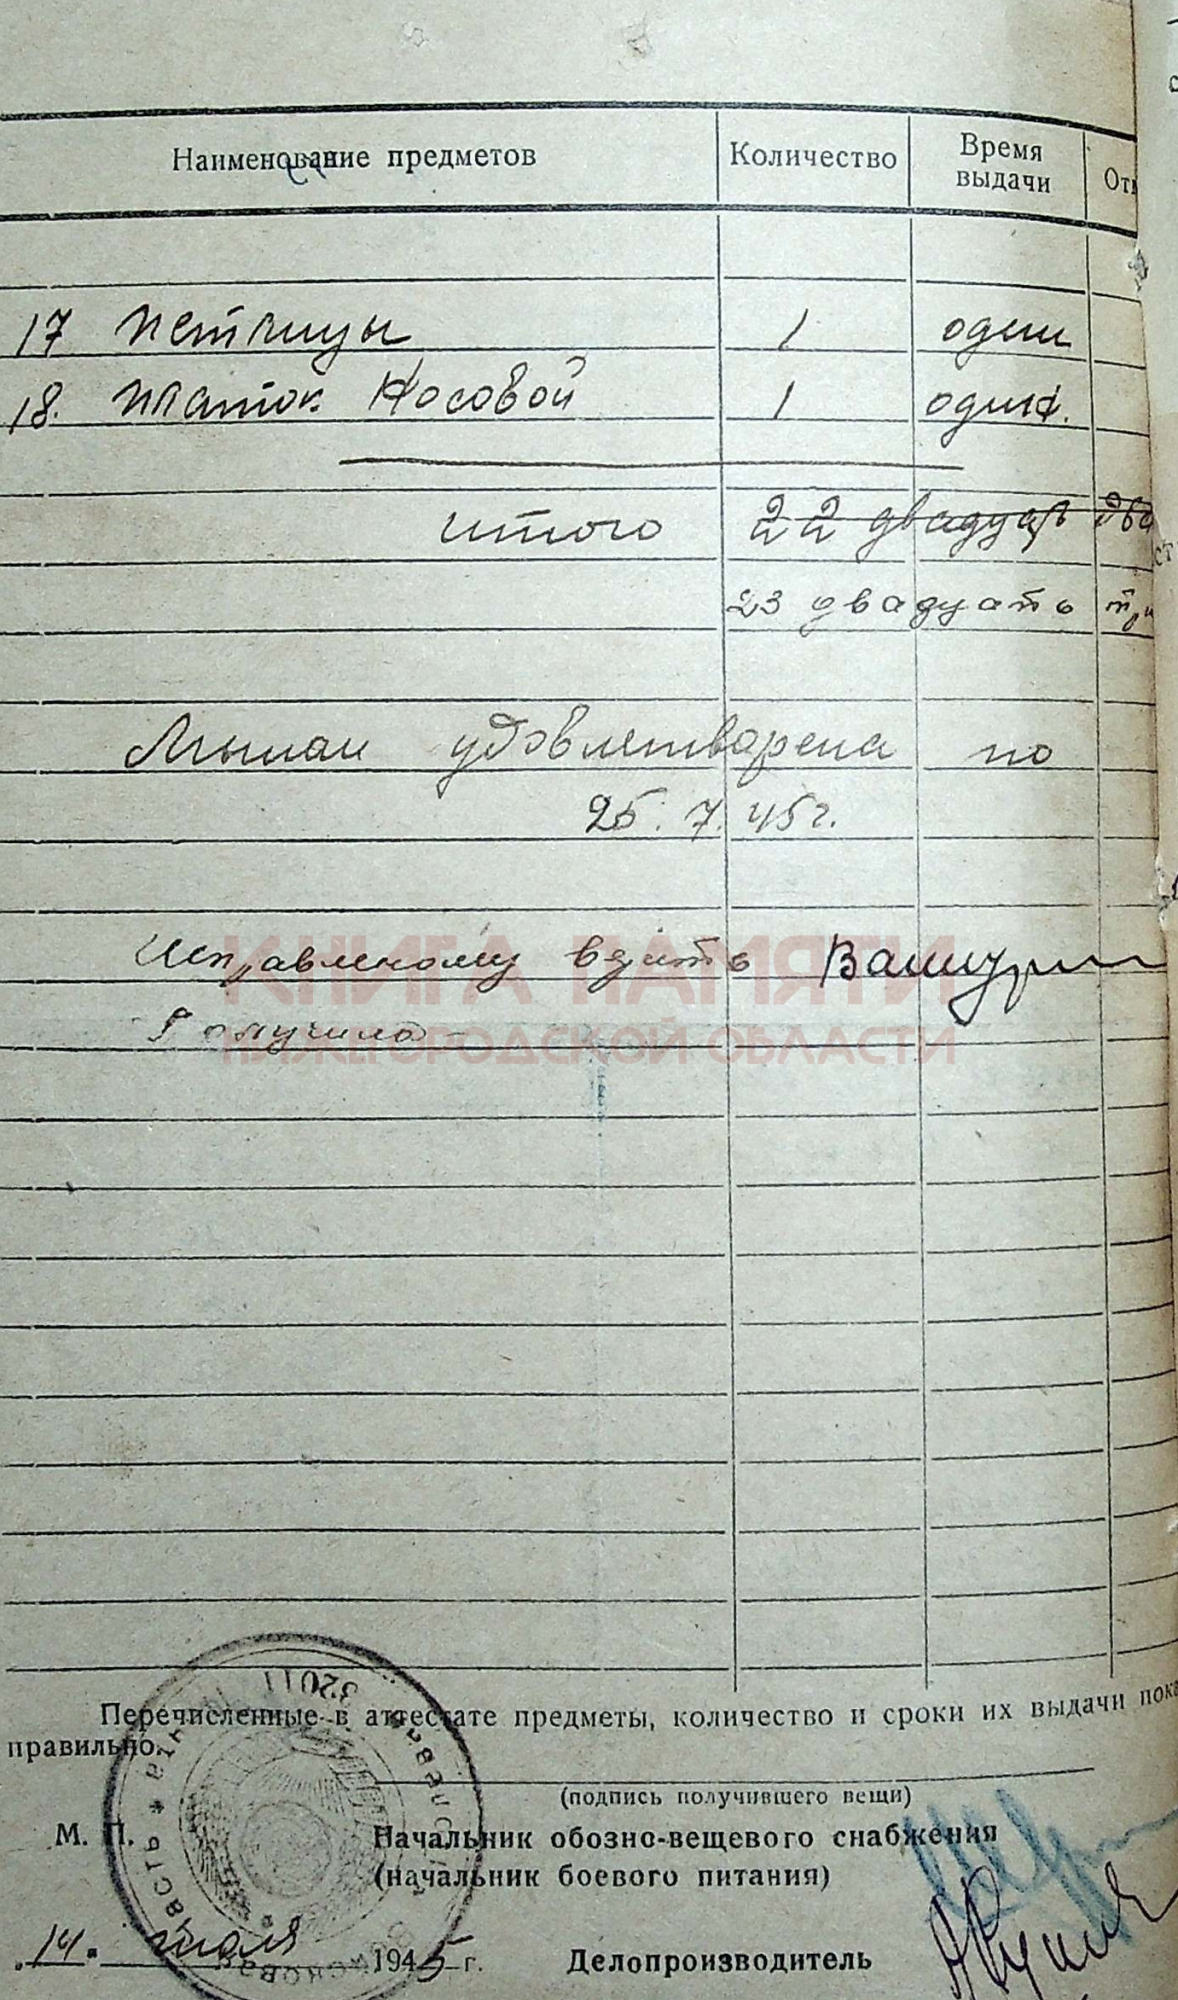 Наименование предметов Количество Время выдачи Отм
17 Петлицы 1 один
18. Платок Носовой 1 один.
итого 22 двадцать два
23 двадцать три
Мылом удовлетварена по
25.7.45г.
КНИГА ПАМЯТИ
Исправленому верить Вашурин
НИЖЕГОРОДСКОЙ ОБЛАСТИ
Получила
32011
Перечисленные в аттестате предметы, количество и сроки их выдачи пока
правильно.
(подпись получившего вещи)
М. П. Начальник обозно-вещевого снабжения
(начальник боевого питания)
„14" июля 1945 г. Делопроизводитель